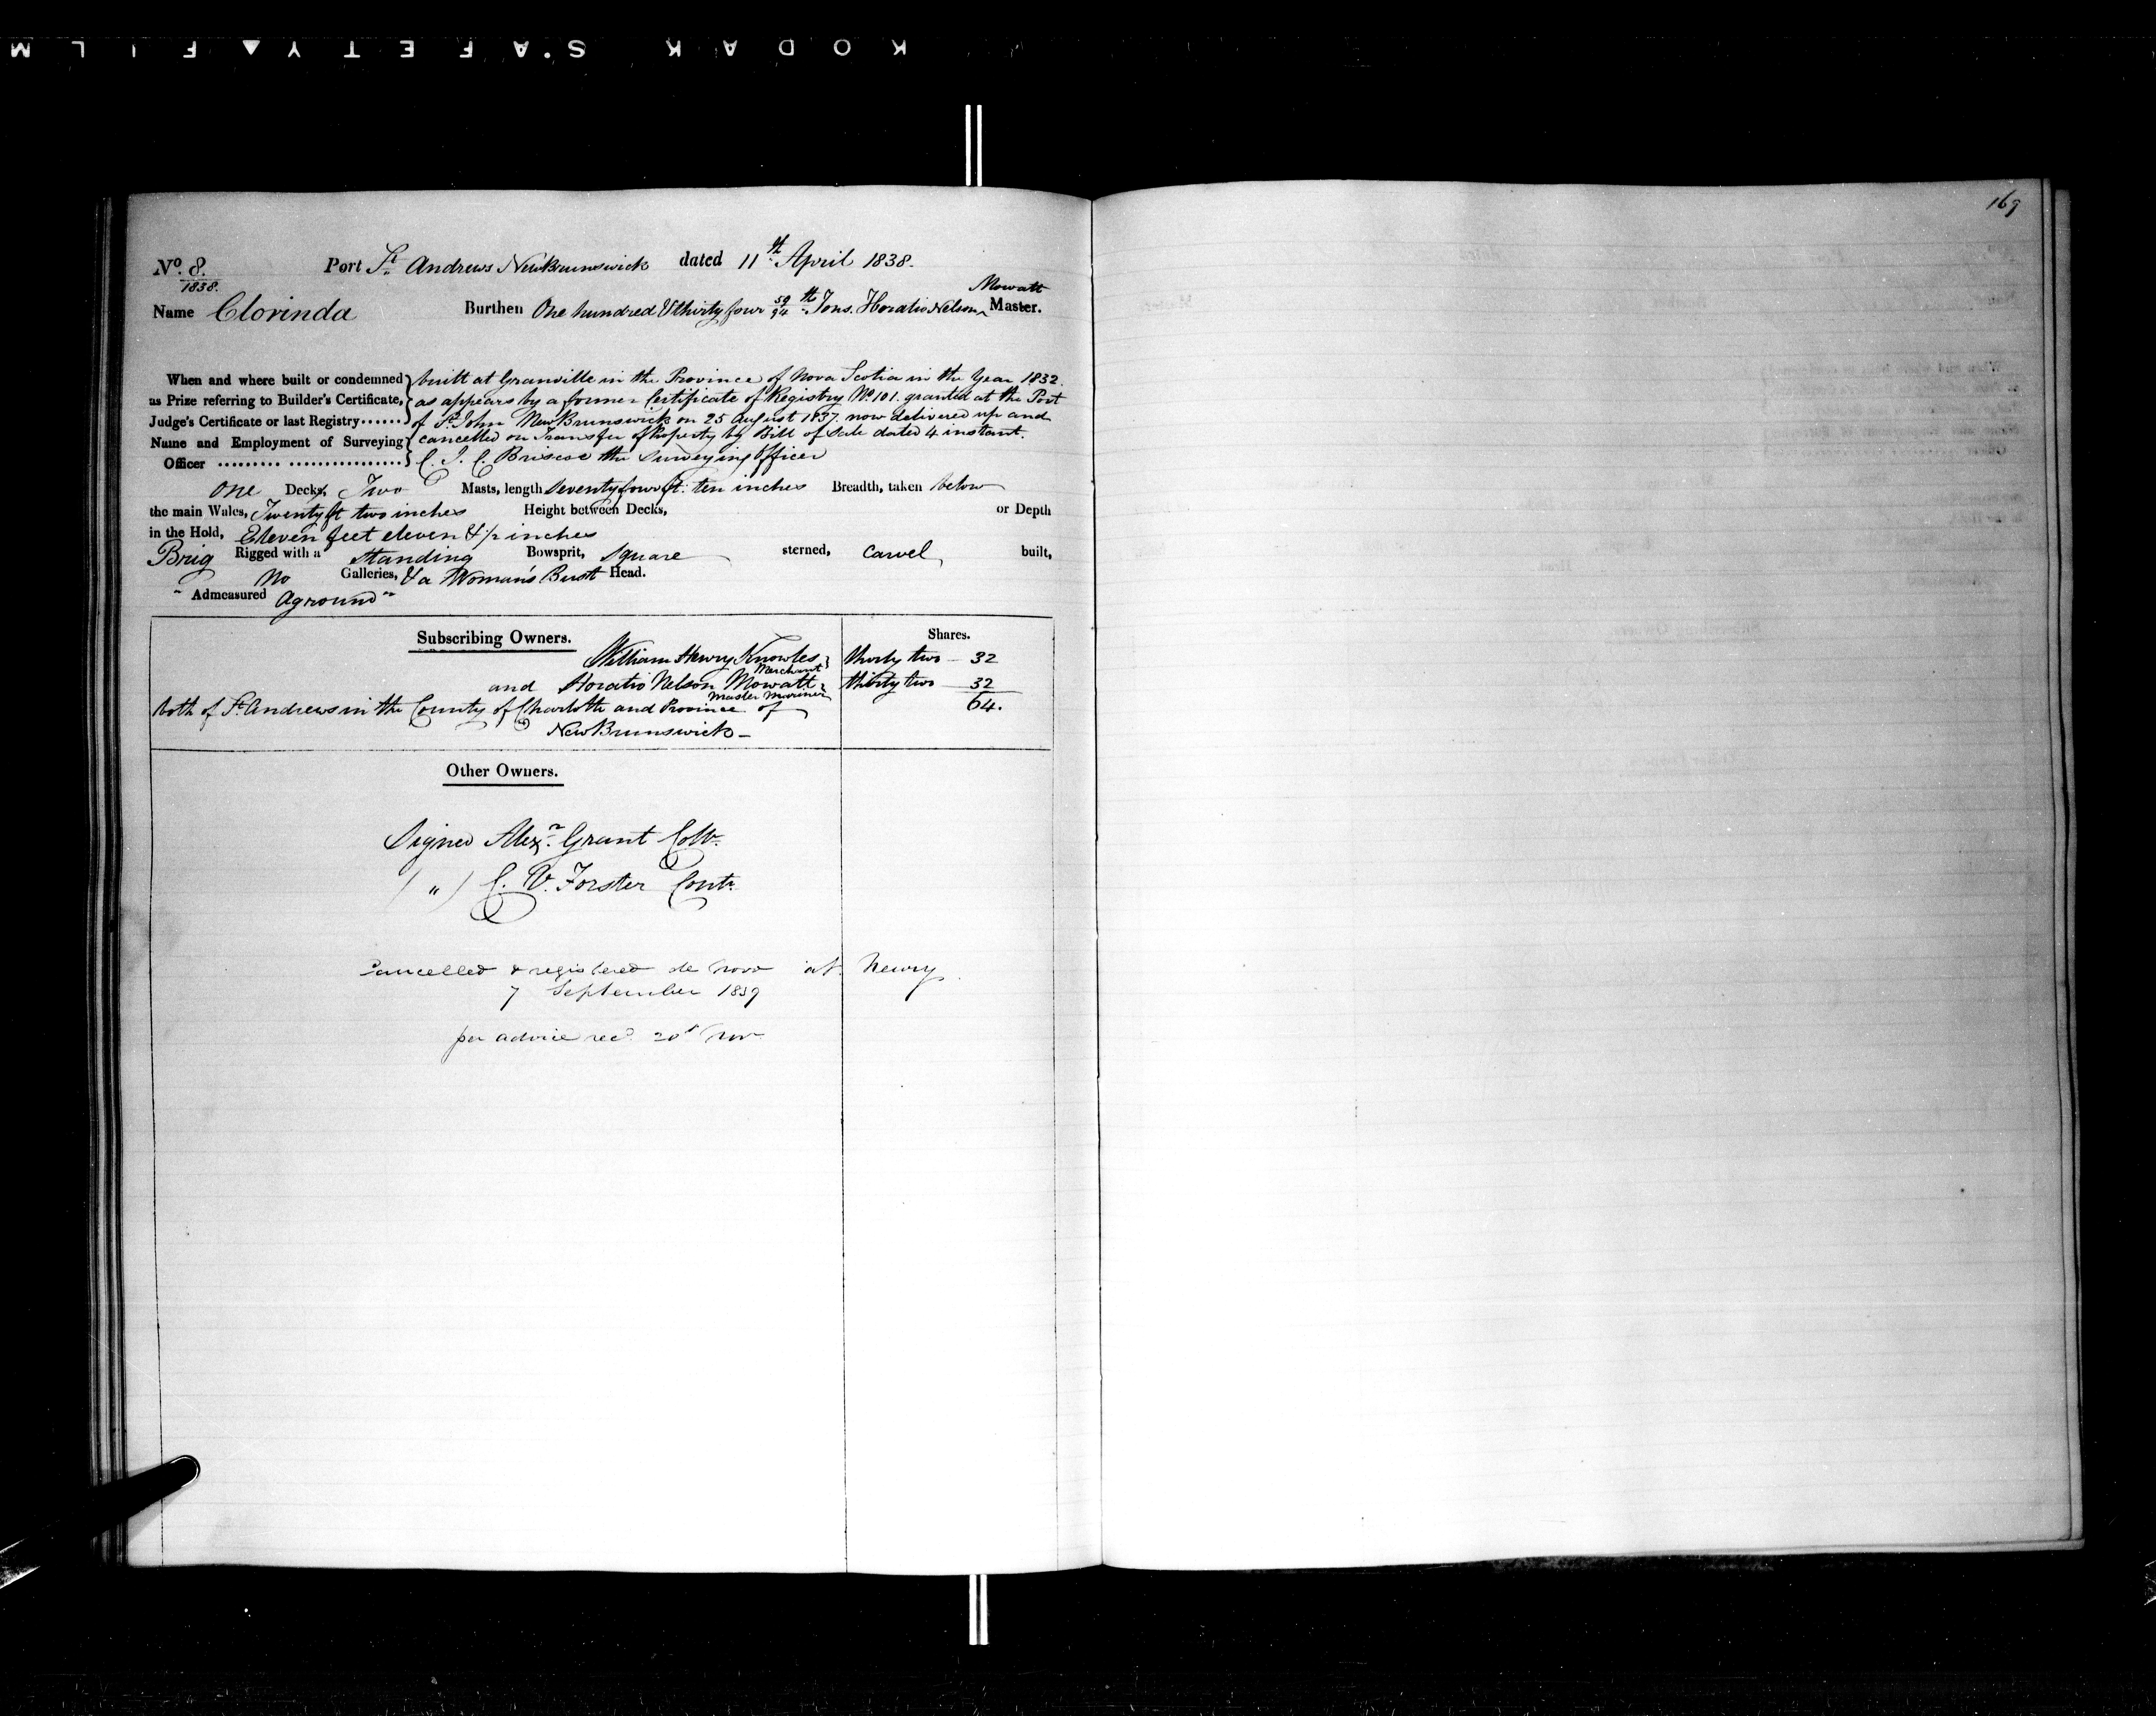 KODAK S.AFETY▲FILM
169
No. 8. Port St. Andrews New Brunswick dated 11th April 1838.
1838.
Mowatt
Name Clorinda Burthen One hundred & thirty four 59/94th Tons. Horatio Nelson ^ Master.
When and where built or condemned } built at Granville in the Province of Nova Scotia in the Year 1832.
as Prize referring to Builder's Certificate, } as appears by a former Certificate of Registry No 101. granted at the Port
Judge's Certificate or last Registry ...... } of St. John New Brunswick on 25 August 1837. now delivered up and
Name and Employment of Surveying } cancelled on Transfer of Property by Bill of Sale dated 4 instant.
Officer ......... ................ } C. J. C. Briscoe the Surveying Officer
One Decks, Two Masts, length Seventy four ft: ten inches Breadth, taken below
the main Wales, Twenty ft two inches Height between Decks, or Depth
in the Hold, Eleven feet eleven & 1/2 inches
Brig Rigged with a Standing Bowsprit, Square sterned, Carvel built,
No Galleries, & a Woman's Bust Head.
" Admeasured Aground "
Subscribing Owners. Shares.
William Henry Knowles } thirty two – 32
Merchant
and Horatio Nelson Mowatt } thirty two – 32
Master Mariner
both of St. Andrews in the County of Charlotte and Province of 64.
New Brunswick –
Other Owners.
Signed Alexr. Grant Collr.
( " ) C. V. Forster Contr.
Cancelled & registered de novo at Newry
7 September 1839
per advice recd. 20 Nov